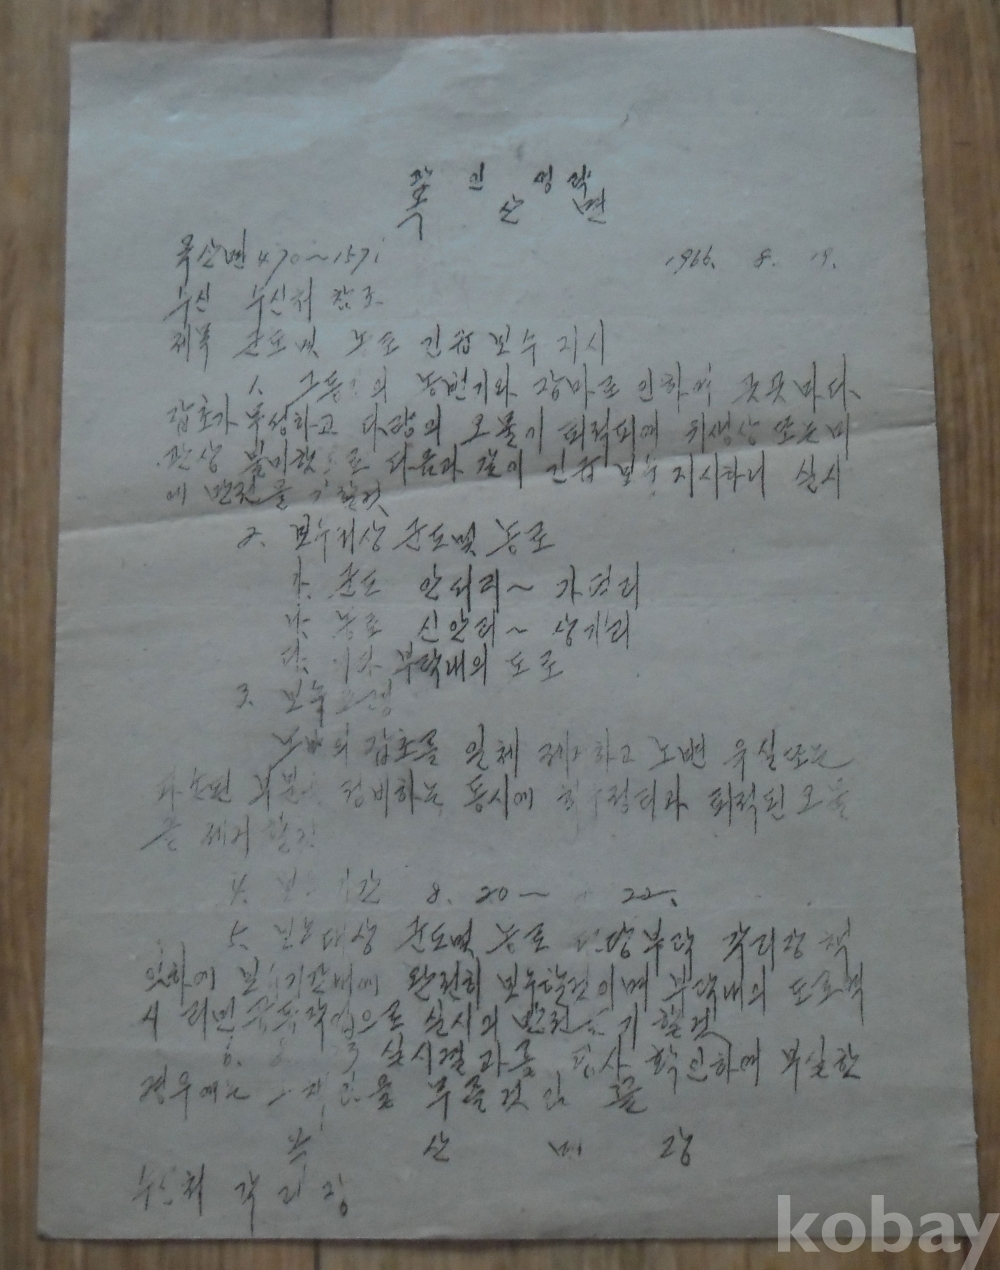 관인생략
목산면
목산면 470~1571 1966. 8. 19.
수신 수신처 참조
제목 군도및 농로 긴급 보수 지시
1. 그동안의 농번기와 장마로 인하여 곳곳마다
잡초가 무성하고 다량의 오물이 퇴적되여 위생상 또는 미
관상 불미함으로 다음과 같이 긴급 보수 지시하니 실시
에 만전을 기할것
2. 보수대상 군도및 농로
가. 군도 안터리~가정리
나. 농로 신안리~상가리
다. 기타 부락내의 도로
3. 보수요령
노변의 잡초를 일체 제거하고 노변 유실또는
파손된 부분을 정비하는 동시에 퇴적된 오물
을 제거할것
4. 보수기간 8. 20~ 22.
5. 보수대상 군도및 농로 담당부락 각리장 책
임하에 보수기간내에 완전히 보수할것이며 부락내의 도로 역
시 리민 공동작업으로 실시의 만전을 기할것
6. 실시결과를 확인하여 부실한
경우에는 책임을 무를것임 끝
목 산 면 장
수신처 각리장
kobay